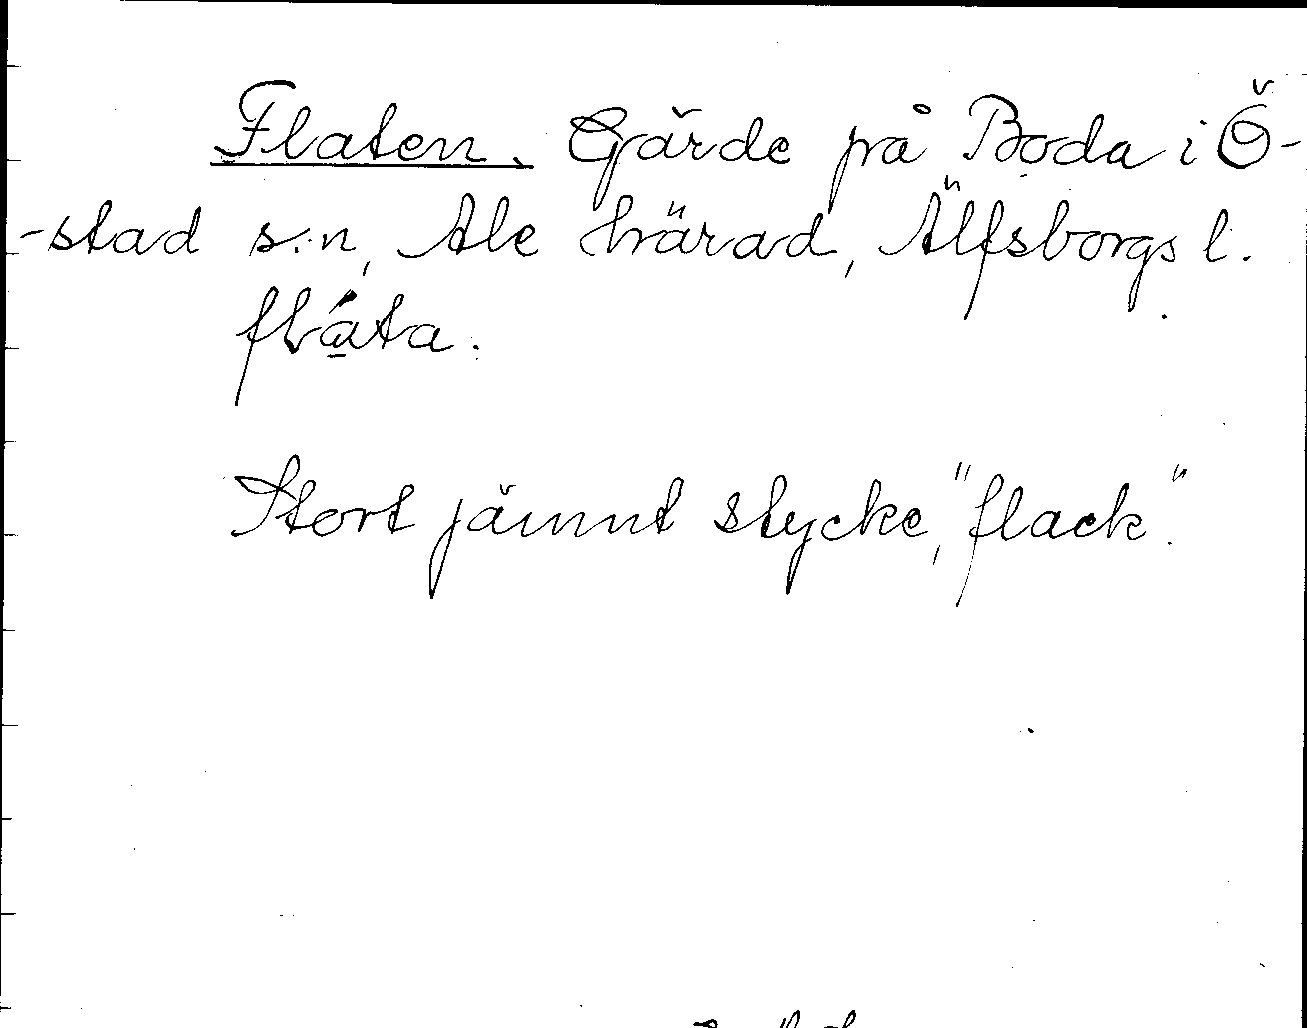 Flaten. Gärde på Boda i Ö-
-stad s:n, Ale härad, Älfsborgs l.
flá̱ta.
Stort jämnt stycke, "flack".